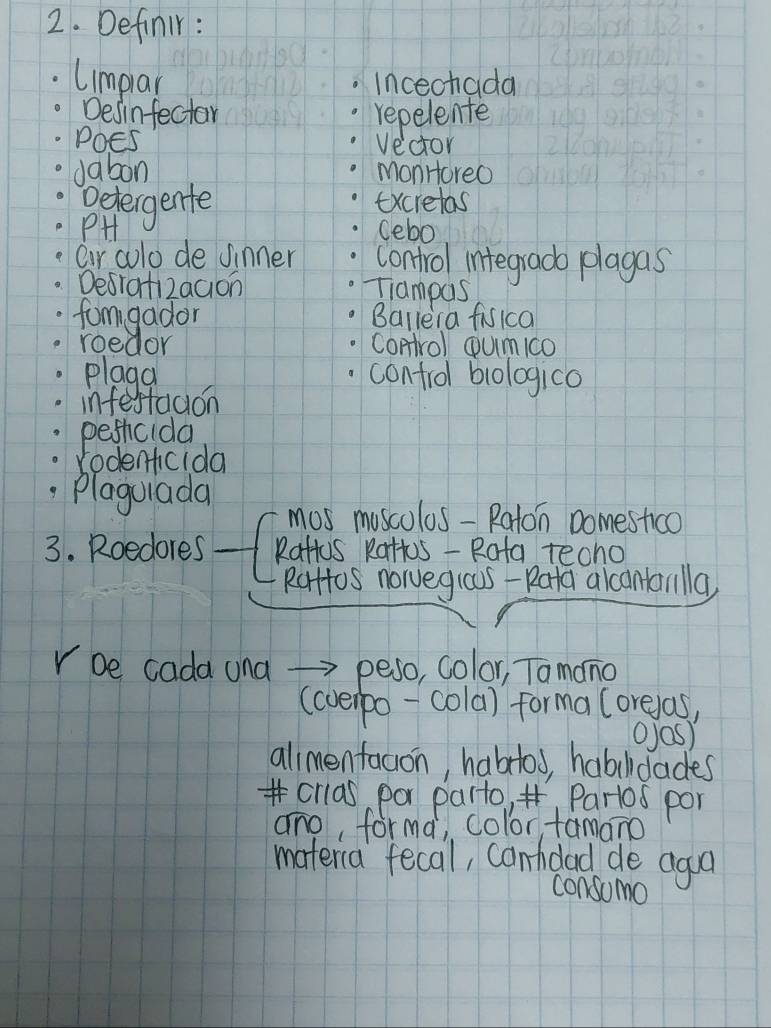 2. Definir:
• Limpiar
• Desinfectar
• POES
• Jabon
• Detergente
• PH
• Circulo de sinner
• Desratización
• fumigador
• roedor
• plaga
• infestación
• pesticida
• rodenticida
• Plaguiada
• incectiada
• repelente
• vector
• monitoreo
• excretas
• Cebo
• Control integrado plagas
• Trampas
• Barrera fisica
• Control Quimico
• control biologico
3. Roedores
mos musculos - Ratón Domestico
Rattus Rattus - Rata Techo
Rattos norvegicus - Rata alcantarilla
r De cada una → peso, color, Tamaño
(cuerpo - cola) forma (orejas,
ojos)
alimentación, habitos, habilidades
# crias por parto, # Partos por
año, forma, color, tamaño
materia fecal, cantidad de agua
consumo